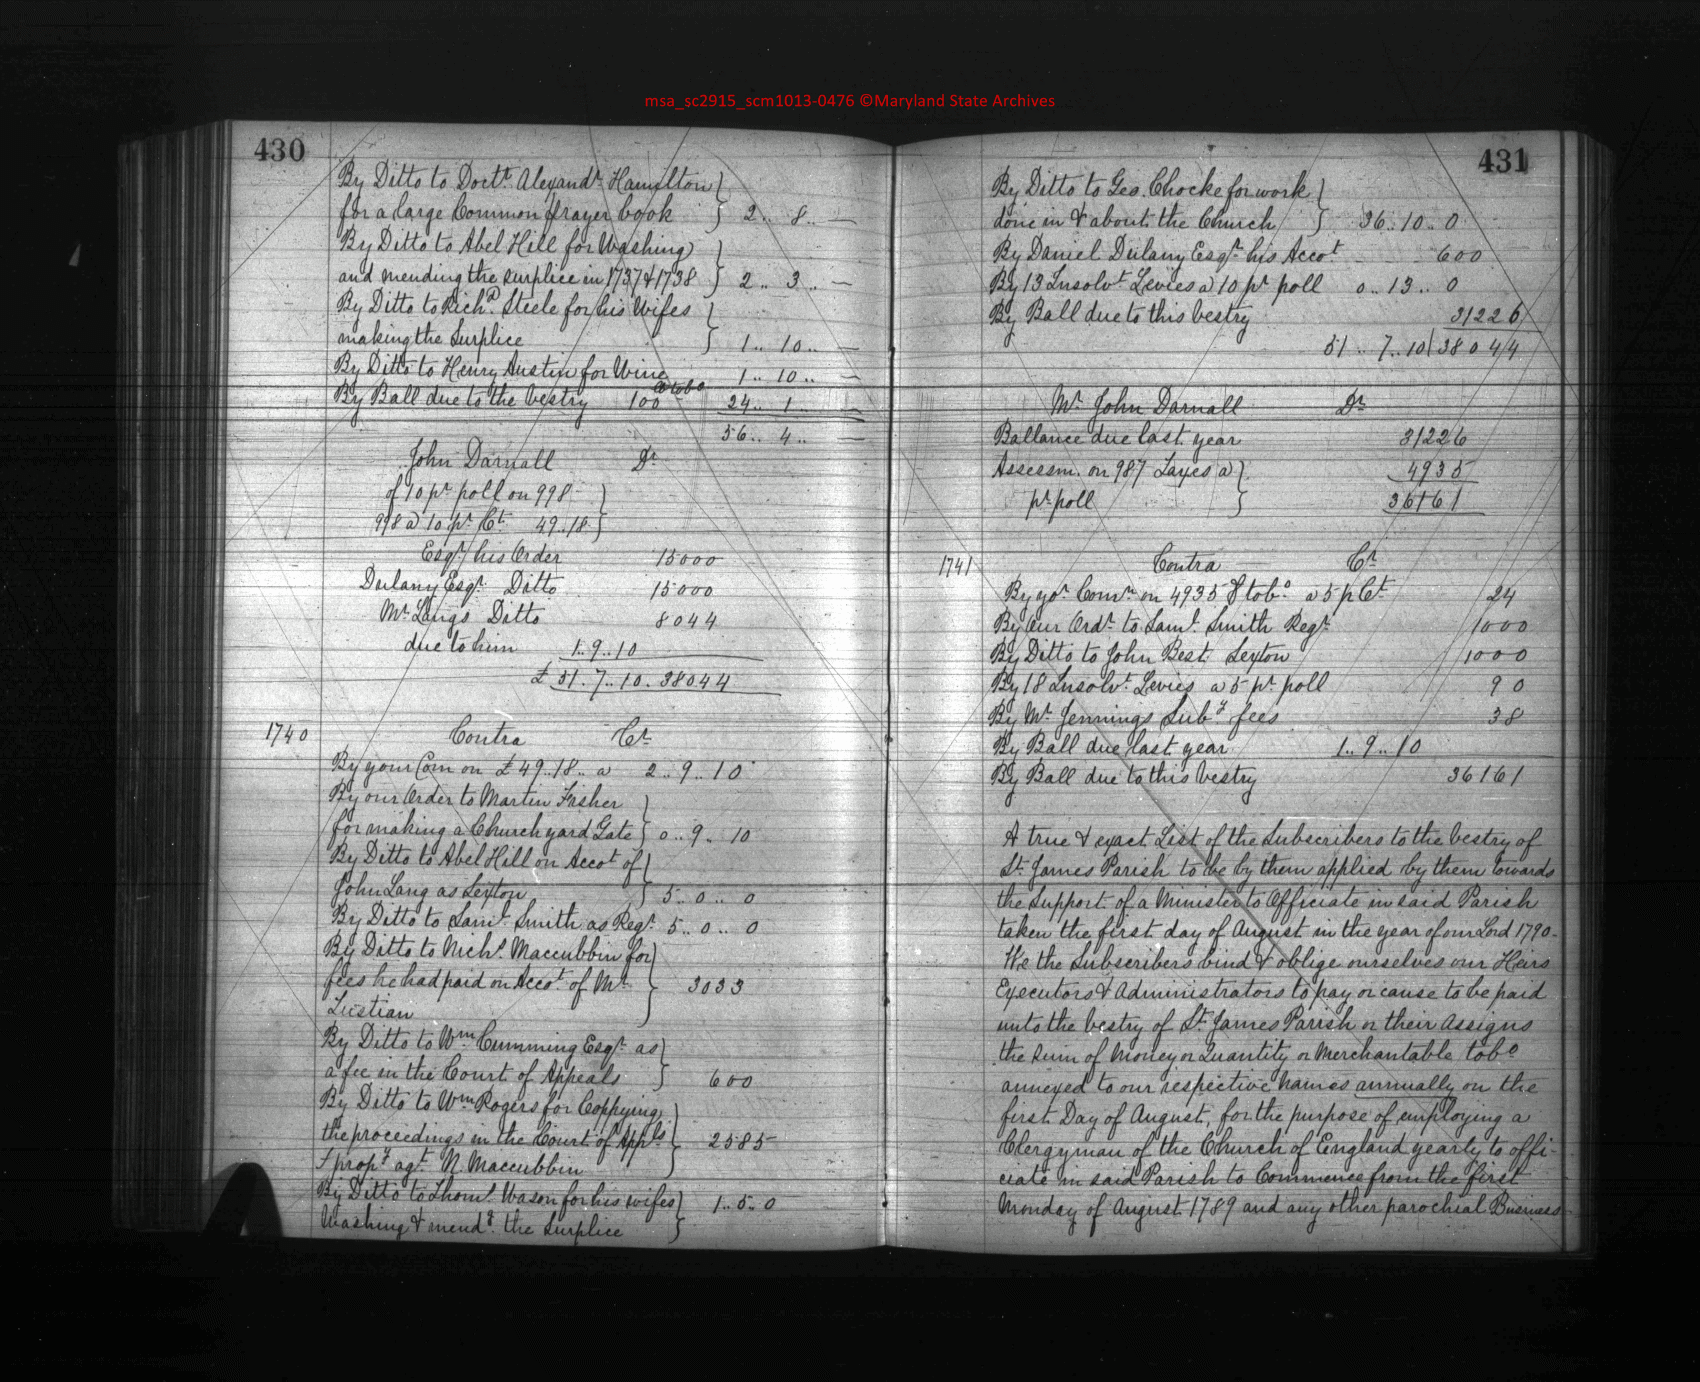 msa_sc2915_scm1013-0476 ©Maryland State Archives
430
By Ditto to Doctr. Alexandr. Hamilton
for a large Common prayer book 2.. 8.. —
By Ditto to Abel Hill for Washing
and mending the surplice in 1737 & 1738 2.. 3.. —
By Ditto to Richd. Steele for his Wifes
making the Surplice 1.. 10.. —
By Ditto to Henry Austin for Wine 1.. 10.. —
By Ball due to the Vestry 100 tobo 24.. 1.. —
56.. 4.. —
John Darnall Dr.
of 10 pr. poll on 998
998 a 10 pr. Ct. 49..18
Esqr. his Order 15000
Dulany Esqr. Ditto 15000
Mr. Langs Ditto 8044
due to him 1..9..10
£ 51.7..10. 38044
1740 Contra Cr.
By your Com on £49..18.. a 2..9..10
By our Order to Martin Fisher
for making a Church yard Gate 0..9..10
By Ditto to Abel Hill on Accot. of
John Lang as Sexton 5..0..0
By Ditto to Saml. Smith as Regr. 5..0..0
By Ditto to Nichs. Maccubbin for
fees he had paid on Accot. of Mr. 3033
Lustian
By Ditto to Wm. Cumming Esqr. as
a fee in the Court of Appeals 600
By Ditto to Wm. Rogers for Coppying
the proceedings in the Court of Appls. 2585
propy. agt. N. Maccubbin
By Ditto to Thoms. Wason for his wifes 1..5..0
Washing & mendg. the Surplice
431
By Ditto to Geo. Chocke for work
done in & about the Church 36..10..0
By Daniel Dulany Esqr. his Accot 600
By 13 Insolvt. Levies a 10 pr. poll 0..13..0
By Ball due to this Vestry 31226
51..7..10 38044
Mr. John Darnall Dr.
Ballance due last year 31226
Assessm. on 987 Taxes a 4935
pr. poll 36161
1741 Contra Cr.
By yor. Comn. on 4935 tobo. a 5 p Ct. 24
By Our Ordr. to Saml. Smith Regr. 1000
By Ditto to John Best Sexton 1000
By 18 Insolvt. Levies a 5 pr. poll 90
By Mr. Jennings Suby. fees 38
By Ball due last year 1..9..10
By Ball due to this Vestry 36161
A true & exact List of the Subscribers to the Vestry of
St. James Parish to be by them applied by them towards
the Support of a Minister to Officiate in said Parish
taken the first day of August in the year of our Lord 1790.
We the Subscribers bind & oblige ourselves our Heirs
Executors & Administrators to pay or cause to be paid
unto the Vestry of St. James Parish or their Assigns
the Sum of Money or Quantity or Merchantable tobo.
annexed to our respective names annually on the
first Day of August, for the purpose of employing a
Clergyman of the Church of England yearly to offi-
ciate in said Parish to Commence from the first
Monday of August 1789 and any other parochial Business